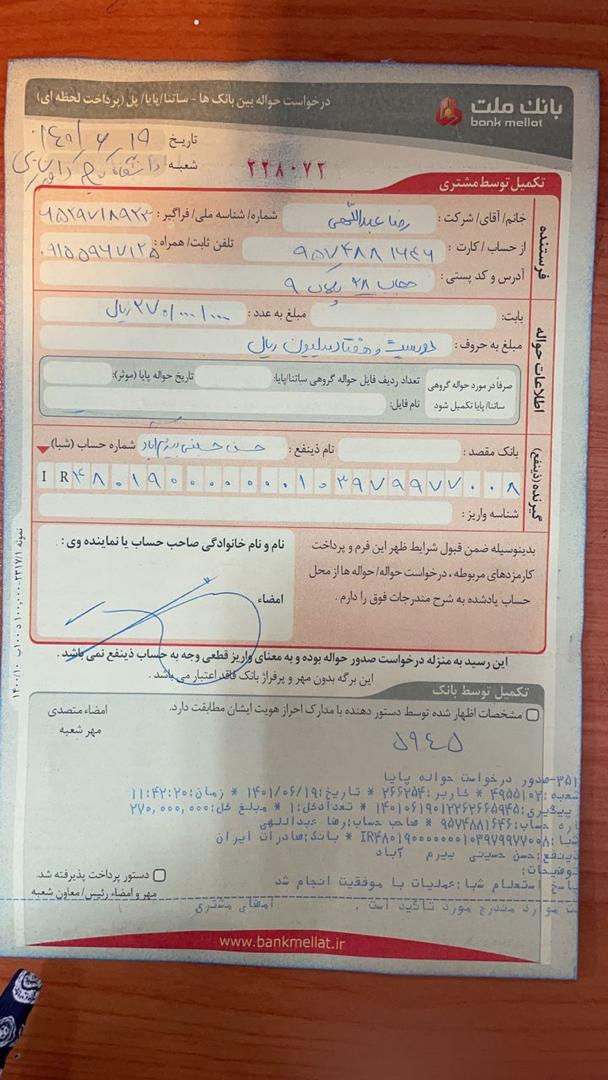 بانک ملت
bank mellat
درخواست حواله بین بانک ها - ساتنا/پایا/ پل (پرداخت لحظه ای)
تاریخ ۱۴۰۱/۶/۱۹
شعبه: دانشگاه
۲۲۸۰۷۲
تکمیل توسط مشتری
فرستنده
خانم/آقای/ شرکت: رضا عبداللهی شماره/ شناسه ملی/ فراگیر:
از حساب / کارت: ۹۵۷۴۸۸۱۶۴۶ تلفن ثابت/ همراه: ۰۹۱۵۵۹۶۷۱۲۵
آدرس و کد پستی: حجاب ۲۸ پلاک ۹
اطلاعات حواله
بابت: مبلغ به عدد: ۲۷۰/۰۰۰/۰۰۰ ریال
مبلغ به حروف: دویست و هفتاد میلیون ریال
صرفاً در مورد حواله گروهی ساتنا/پایا تکمیل شود
تعداد ردیف فایل حواله گروهی ساتنا/پایا: تاریخ حواله پایا (موثر):
نام فایل:
گیرنده (ذینفع)
بانک مقصد: نام ذینفع: حسن حسینی بیرم آباد شماره حساب (شبا)
I R ۴ ۸ ۰ ۱ ۹ ۰ ۰ ۰ ۰ ۰ ۰ ۰ ۱ ۰ ۳ ۹ ۷ ۹ ۹ ۷ ۷ ۰ ۰ ۸
شناسه واریز:
بدینوسیله ضمن قبول شرایط ظهر این فرم و پرداخت
کارمزدهای مربوطه، درخواست حواله/ حواله ها از محل
حساب یادشده به شرح مندرجات فوق را دارم.
نام و نام خانوادگی صاحب حساب یا نماینده وی:
امضاء
این رسید به منزله درخواست صدور حواله بوده و به معنای واریز قطعی وجه به حساب ذینفع نمی باشد.
این برگه بدون مهر و پرفراژ بانک فاقد اعتبار می باشد.
تکمیل توسط بانک
مشخصات اظهار شده توسط دستور دهنده با مدارک احراز هویت ایشان مطابقت دارد.
امضاء متصدی
مهر شعبه
۵۹۴۵
۳۵۱-صدور درخواست حواله پایا
شعبه:۴۹۵۵۱۰۲ * کاربر:۲۶۶۲۵۴ * تاریخ:۱۴۰۱/۰۶/۱۹ * زمان:۱۱:۴۲:۲۰
پیگیری:۱۴۰۱۰۶۱۹۰۱۲۲۶۲۶۶۵۹۴۵ * تعدادکل:۱ * مبلغ کل:۲۷۰,۰۰۰,۰۰۰
اره حساب:۹۵۷۴۸۸۱۶۴۶ * صاحب حساب:رضا عبداللهی
شبا:IR۴۸۰۱۹۰۰۰۰۰۰۰۱۰۳۹۷۹۹۷۷۰۰۸ * بانک:صادرات ایران
ذینفع:حسن حسینی بیرم آباد
توضیحات:
پاسخ استعلام شبا:عملیات با موفقیت انجام شد
ت موارد مندرج مورد تائید است . امضای مشتری
دستور پرداخت پذیرفته شد.
مهر و امضاء رئیس/ معاون شعبه
www.bankmellat.ir